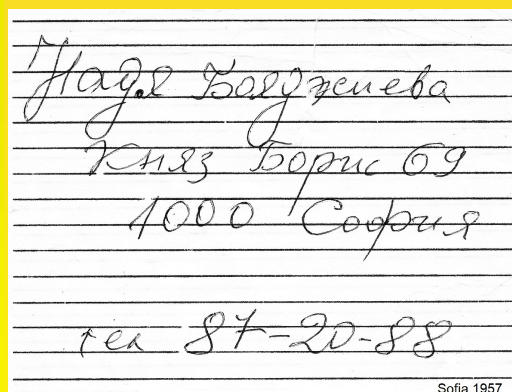 Надя Бояджиева
Княз Борис 69
1000 София
тел 87-20-88
Sofia 1957